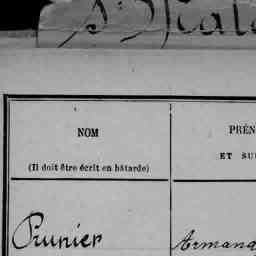 St Malo
NOM
PRÉN
ET SU
(Il doit être écrit en bâtarde)
Prunier
Armand